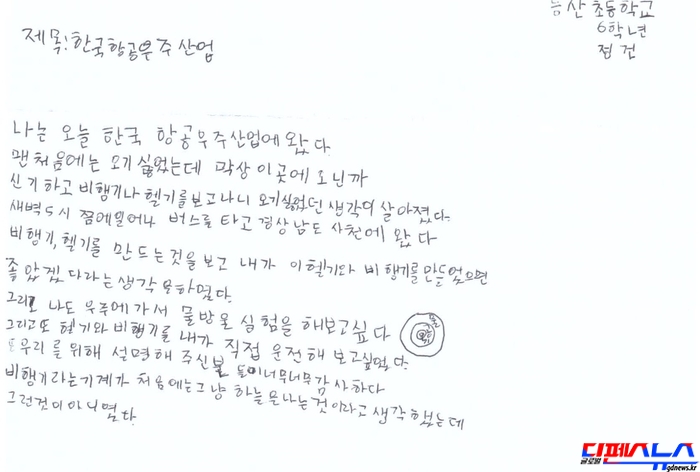 능산초등학교
6학년
정건
제목:한국항공우주산업
나는 오늘 한국 항공우주산업에 왔다.
맨처음에는 오기싫었는데 막상이곳에 오닌까
신기하고 비행기나 헬기를보고나니 오기싫었던 생각이 살아졌다.
새벽5시 쯤에일어나 버스를 타고경상남도 사천에 왔다
비행기,헬기를 만드는것을보고 내가 이헬기와 비행기를만들었으면
좋았겠다라는생각을하였다.
그리고 나도 우주에가서 물방울 실험을 해보고싶다
그리고또 헬기와비행기를 내가 직접 운전해 보고싶었다.
우리를 위해 설명해 주신분들이너무너무감사하다
비행기라는기계가 처음에는그냥 하늘을나는것이라고생각했는데
그런것이아니였다.
글로벌 디펜스뉴스
gdnews.kr